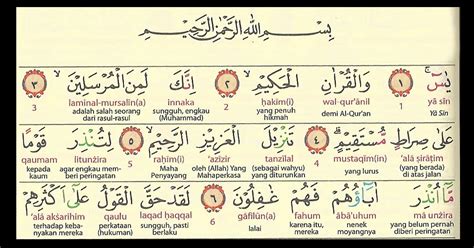 بِسْمِ اللهِ الرَّحْمٰنِ الرَّحِيْمِ
يٰسۤ ۚ ١ وَالْقُرْاٰنِ الْحَكِيْمِ ۙ ٢ اِنَّكَ لَمِنَ الْمُرْسَلِيْنَ ۙ ٣
yā sīn 1 wal-qur'ānil ḥakīm(i) 2 innaka laminal-mursalīn(a) 3
Yā Sīn demi Al-Qur'an yang penuh hikmah sungguh, engkau (Muhammad) adalah salah seorang dari rasul-rasul
عَلٰى صِرَاطٍ مُّسْتَقِيْمٍ ۗ ٤ تَنْزِيْلَ الْعَزِيْزِ الرَّحِيْمِ ۙ ٥ لِتُنْذِرَ قَوْمًا
'alā ṣirāṭim mustaqīm(in) 4 tanzīlal 'azīzir raḥīm(i) 5 litunżira qaumam
(yang berada) di atas jalan yang lurus (sebagai wahyu) yang diturunkan oleh (Allah) Yang Mahaperkasa Maha Penyayang agar engkau memberi peringatan kepada kaum
مَّآ اُنْذِرَ اٰبَاۤؤُهُمْ فَهُمْ غٰفِلُوْنَ ٦ لَقَدْ حَقَّ الْقَوْلُ عَلٰٓى اَكْثَرِهِمْ
mā unżira ābā'uhum fahum gāfilūn(a) 6 laqad ḥaqqal qaulu 'alā akṡarihim
yang belum pernah diberi peringatan nenek moyangnya karena itu, mereka lalai sungguh, pasti berlaku perkataan (hukuman) terhadap kebanyakan mereka